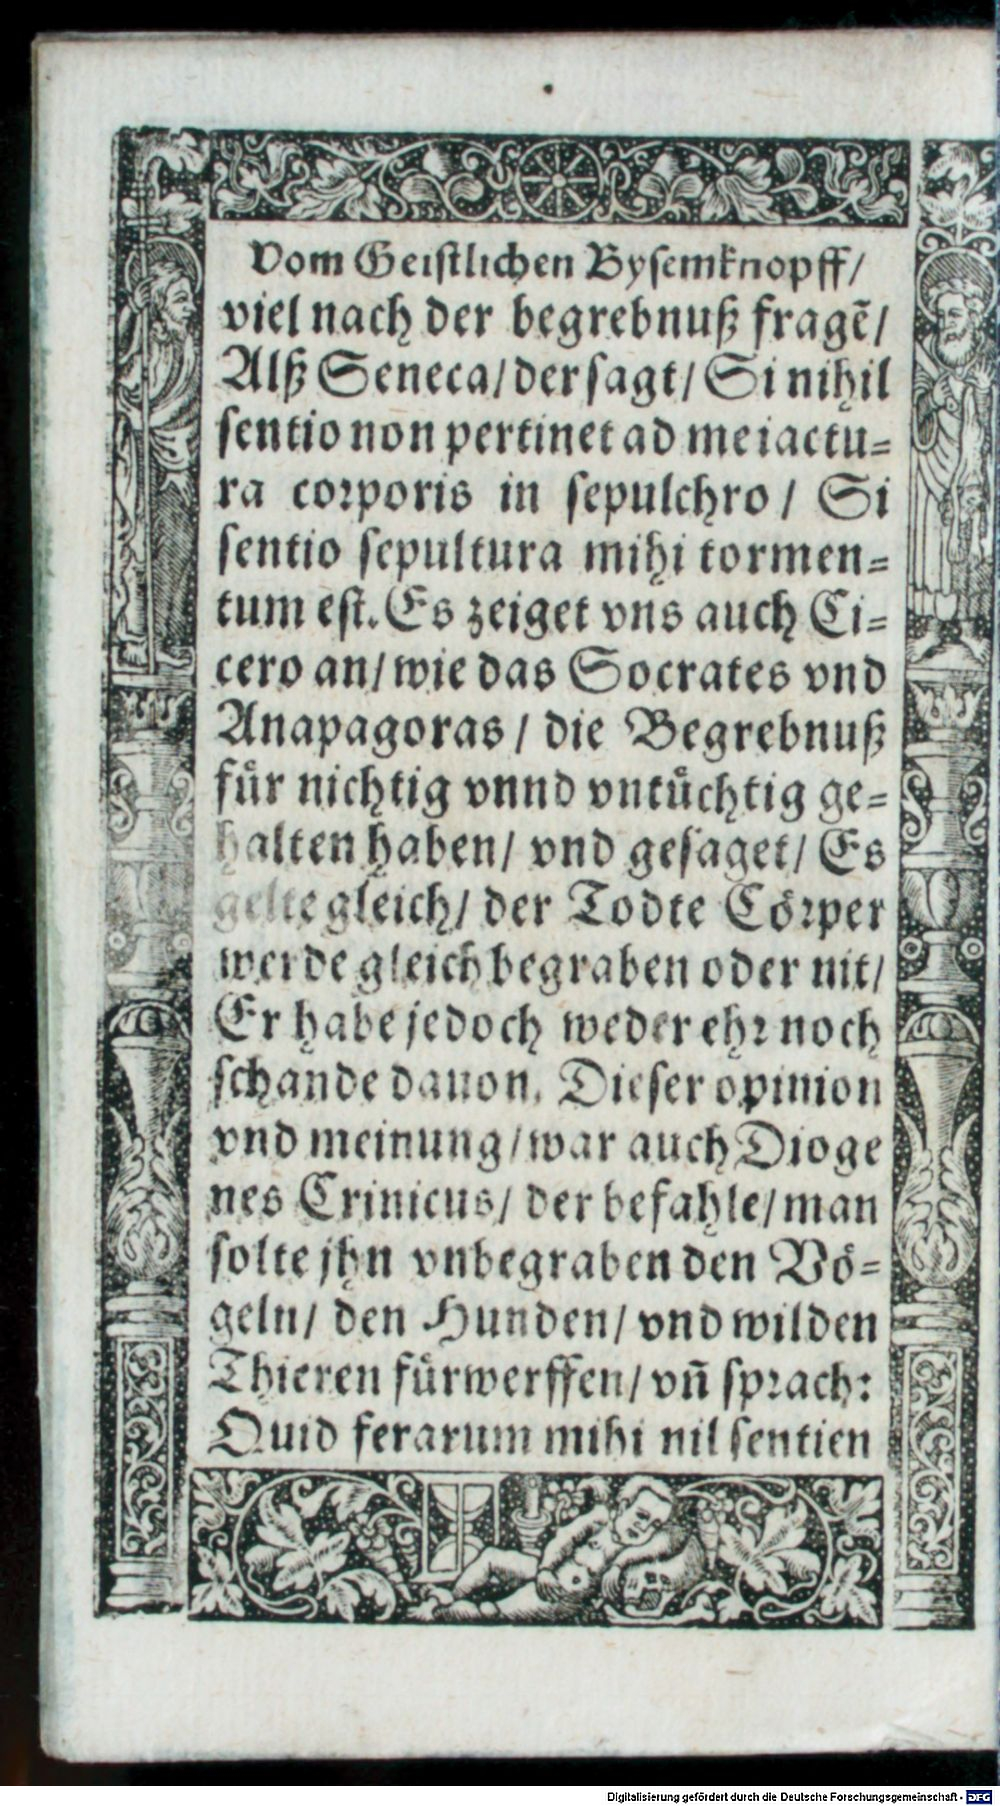 Vom Geistlichen Bysemknopff/
viel nach der begrebnuß fragẽ/
Alß Seneca/ der sagt/ Si nihil
sentio non pertinet ad me iactu-
ra corporis in sepulchro/ Si
sentio sepultura mihi tormen-
tum est. Es zeiget vns auch Ci-
cero an/ wie das Socrates vnd
Anapagoras/ die Begrebnuß
für nichtig vnnd vntüchtig ge-
halten haben/ vnd gesaget/ Es
gelte gleich/ der Todte Cörper
werde gleich begraben oder nit/
Er habe jedoch weder ehr noch
schande dauon. Dieser opinion
vnd meinung/ war auch Dioge
nes Crinicus/ der befahle/ man
solte jhn vnbegraben den Vö-
geln/ den Hunden/ vnd wilden
Thieren fürwerffen/ vñ sprach:
Quid ferarum mihi nil sentien
Digitalisierung gefördert durch die Deutsche Forschungsgemeinschaft - DFG